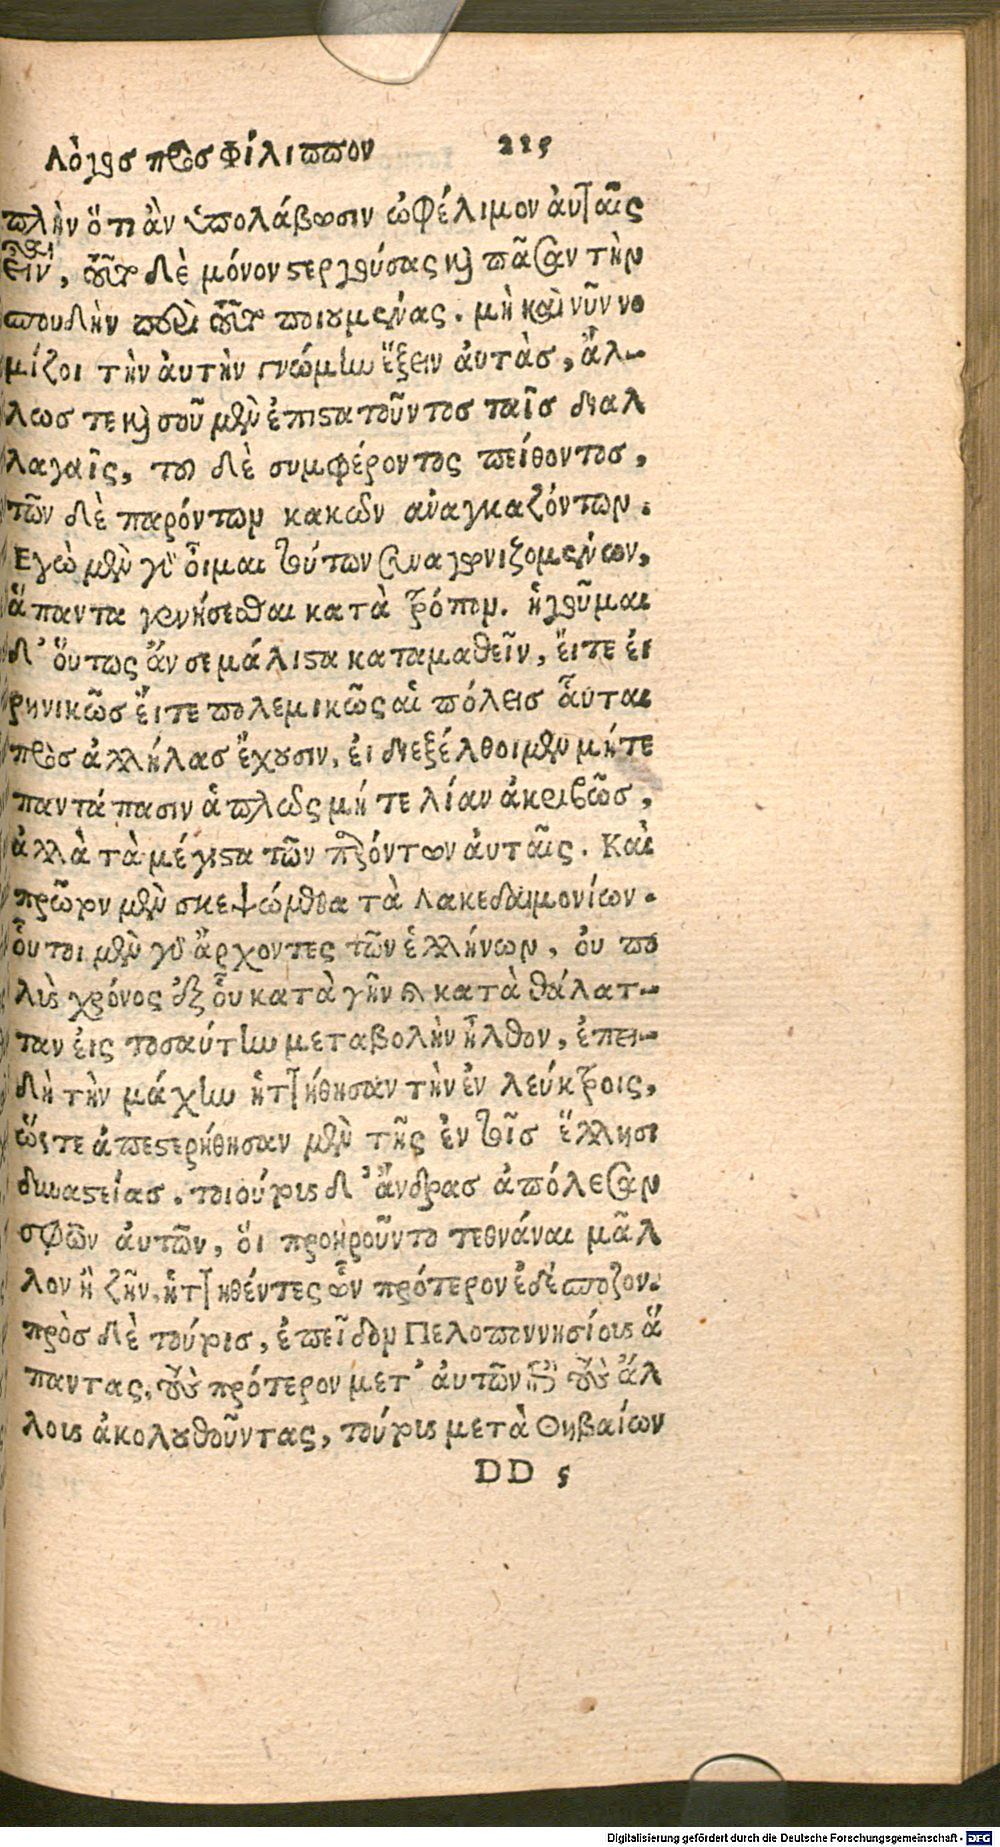 Λόγος πρὸς Φίλιππον 225
πλὴν ὅτι ἂν ὑπολάβωσιν ὠφέλιμον ἀυταῖς
εἶναι, τοῦτο δὲ μόνον στεργούσας καὶ πᾶσαν τὴν
σπουδὴν περὶ τοῦτο ποιουμένας. μὴ καὶ νῦν νο
μίζοι τὴν ἀυτὴν γνώμην ἕξειν ἀυτὰσ, ἄλ-
λωσ τε καὶ σοῦ μὲν ἐπιστατοῦντοσ ταῖσ διαλ
λαγαῖς, τοῦ δὲ συμφέροντος πείθοντοσ,
τῶν δὲ παρόντων κακῶν ἀναγκαζόντων.
Εγὼ μὲν γὰρ ὀῖμαι τούτων συναγωνιζομένων,
ἅπαντα γενήσεσθαι κατὰ τρόπον. ἡγοῦμαι
δ' ὅυτως ἄν σε μάλιστα καταμαθεῖν, ἔιτε ἐι
ρηνικῶσ ἔιτε πολεμικῶς αἱ πόλεισ ἇυται
πρὸσ ἀλλήλασ ἔχουσιν, ἐι διεξέλθοιμεν μήτε
παντάπασιν ἁπλῶς μή τε λίαν ἀκριβῶσ,
ἀλλὰ τὰ μέγιστα τῶν παρόντων ἀυταῖς. Καὶ
πρῶτον μὲν σκεψώμεθα τὰ Λακεδαιμονίων.
ὁῦτοι μὲν γὰρ ἄρχοντες τῶν ἑλλήνων, ὀυ πο
λὺς χρόνος ἐξ ὁῦ κατὰ γῆν καὶ κατὰ θάλατ-
ταν ἐις τοσαύτην μεταβολὴν ἦλθον, ἐπει-
δὴ τὴν μάχην ἡττήθησαν τὴν ἐν λεύκτροις,
ὥςτε ἀπεστερήθησαν μὲν τῆς ἐν τοῖσ ἕλλησι
δυναστείασ. τοιούτους δ' ἄνδρασ ἀπόλεσαν
σφῶν ἀυτῶν, ὅι προῃροῦντο τεθνάναι μᾶλ
λον ἢ ζῆν, ἡττηθέντες ὧν πρότερον ἐδέσποζον.
πρὸσ δὲ τούτοισ, ἐπεῖδον Πελοποννησίους ἅ
παντας, τοὺς πρότερον μετ' ἀυτῶν ἐπὶ τοὺς ἄλ
λους ἀκολουθοῦντας, τούτους μετὰ Θηβαίων
DD 5
Digitalisierung gefördert durch die Deutsche Forschungsgemeinschaft - DFG